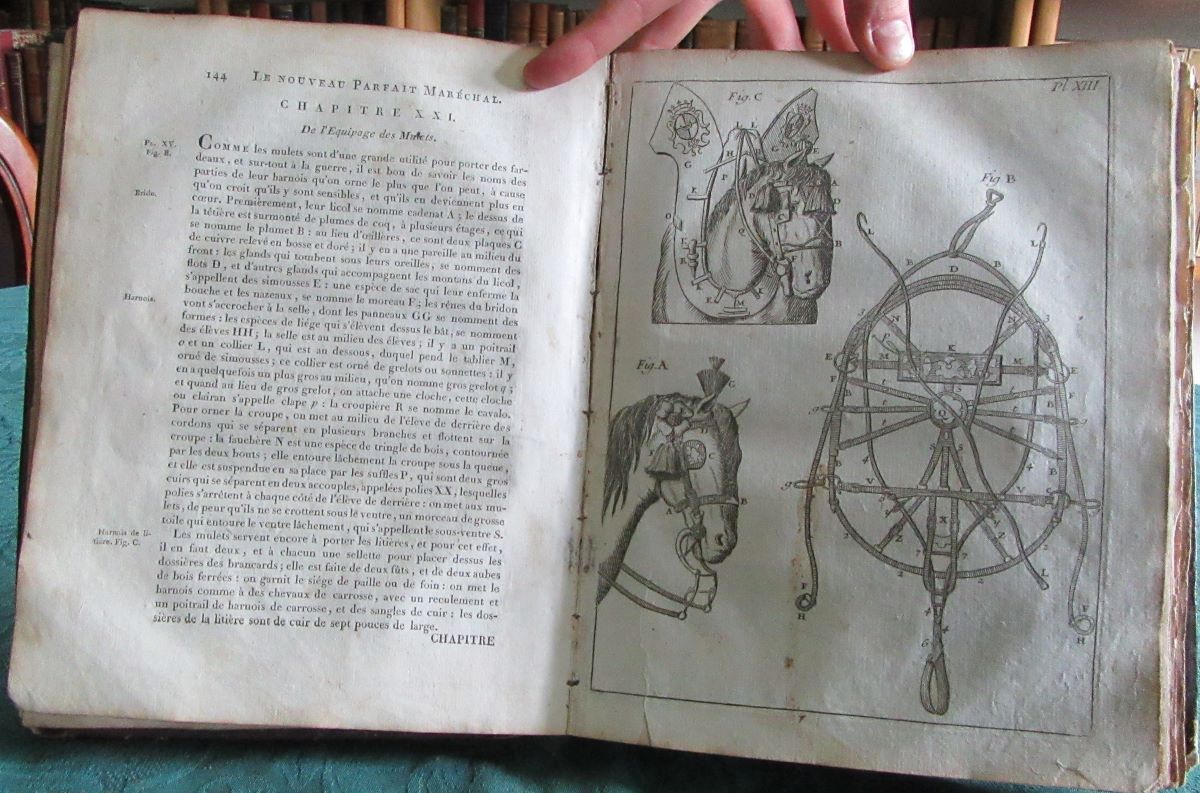 144 LE NOUVEAU PARFAIT MARÉCHAL.
CHAPITRE XXI.
De l'Equipage des Mulets.
PL. XV.
Fig. B.
COMME les mulets sont d'une grande utilité pour porter des far-
deaux, et sur-tout à la guerre, il est bon de savoir les noms des
parties de leur harnois qu'on orne le plus que l'on peut, à cause
qu'on croit qu'ils y sont sensibles, et qu'ils en deviennent plus en
Bride.
cœur. Premièrement, leur licol se nomme cadenat A ; le dessus de
la têtière est surmonté de plumes de coq, à plusieurs étages, ce qui
se nomme le plumet B : au lieu d'œillères, ce sont deux plaques C
de cuivre relevé en bosse et doré ; il y en a une pareille au milieu du
front : les glands qui tombent sous leurs oreilles, se nomment des
flots D, et d'autres glands qui accompagnent les montans du licol,
s'appellent des simousses E : une espèce de sac qui leur enferme la
bouche et les nazeaux, se nomme le moreau F ; les rênes du bridon
Harnois.
vont s'accrocher à la selle, dont les panneaux GG se nomment des
formes : les espèces de liége qui s'élèvent dessus le bât, se nomment
des élèves HH ; la selle est au milieu des élèves ; il y a un poitrail
o et un collier L, qui est au dessous, duquel pend le tablier M,
orné de simousses ; ce collier est orné de grelots ou sonnettes : il y
en a quelquefois un plus gros au milieu, qu'on nomme gros grelot q ;
et quand au lieu de gros grelot, on attache une cloche, cette cloche
ou clairan s'appelle clape p : la croupière R se nomme le cavalo.
Pour orner la croupe, on met au milieu de l'élève de derrière des
cordons qui se séparent en plusieurs branches et flottent sur la
croupe : la fauchère N est une espèce de tringle de bois, contournée
par les deux bouts ; elle entoure lâchement la croupe sous la queue,
et elle est suspendue en sa place par les suffles P, qui sont deux gros
cuirs qui se séparent en deux accouples, appelées polies XX, lesquelles
polies s'arrêtent à chaque côté de l'élève de derrière : on met aux mu-
lets, de peur qu'ils ne se crottent sous le ventre, un morceau de grosse
toile qui entoure le ventre lâchement, qui s'appellent le sous-ventre S.
Harnois de li-
tière. Fig. C.
Les mulets servent encore à porter les litières, et pour cet effet,
il en faut deux, et à chacun une sellette pour placer dessus les
dossières des brancards ; elle est faite de deux fûts, et de deux aubes
de bois ferrées : on garnit le siége de paille ou de foin : on met le
harnois comme à des chevaux de carrosse, avec un reculement et
un poitrail de harnois de carrosse, et des sangles de cuir : les dos-
sières de la litière sont de cuir de sept pouces de large.
CHAPITRE
Pl XIII
Fig. C
Fig B
Fig. A